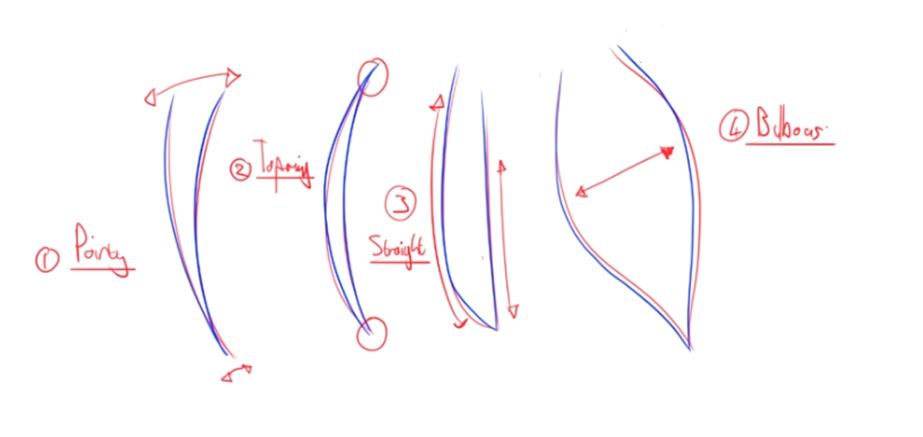 ① Pointy
② Tapering
③
Straight
④ Bulbous.